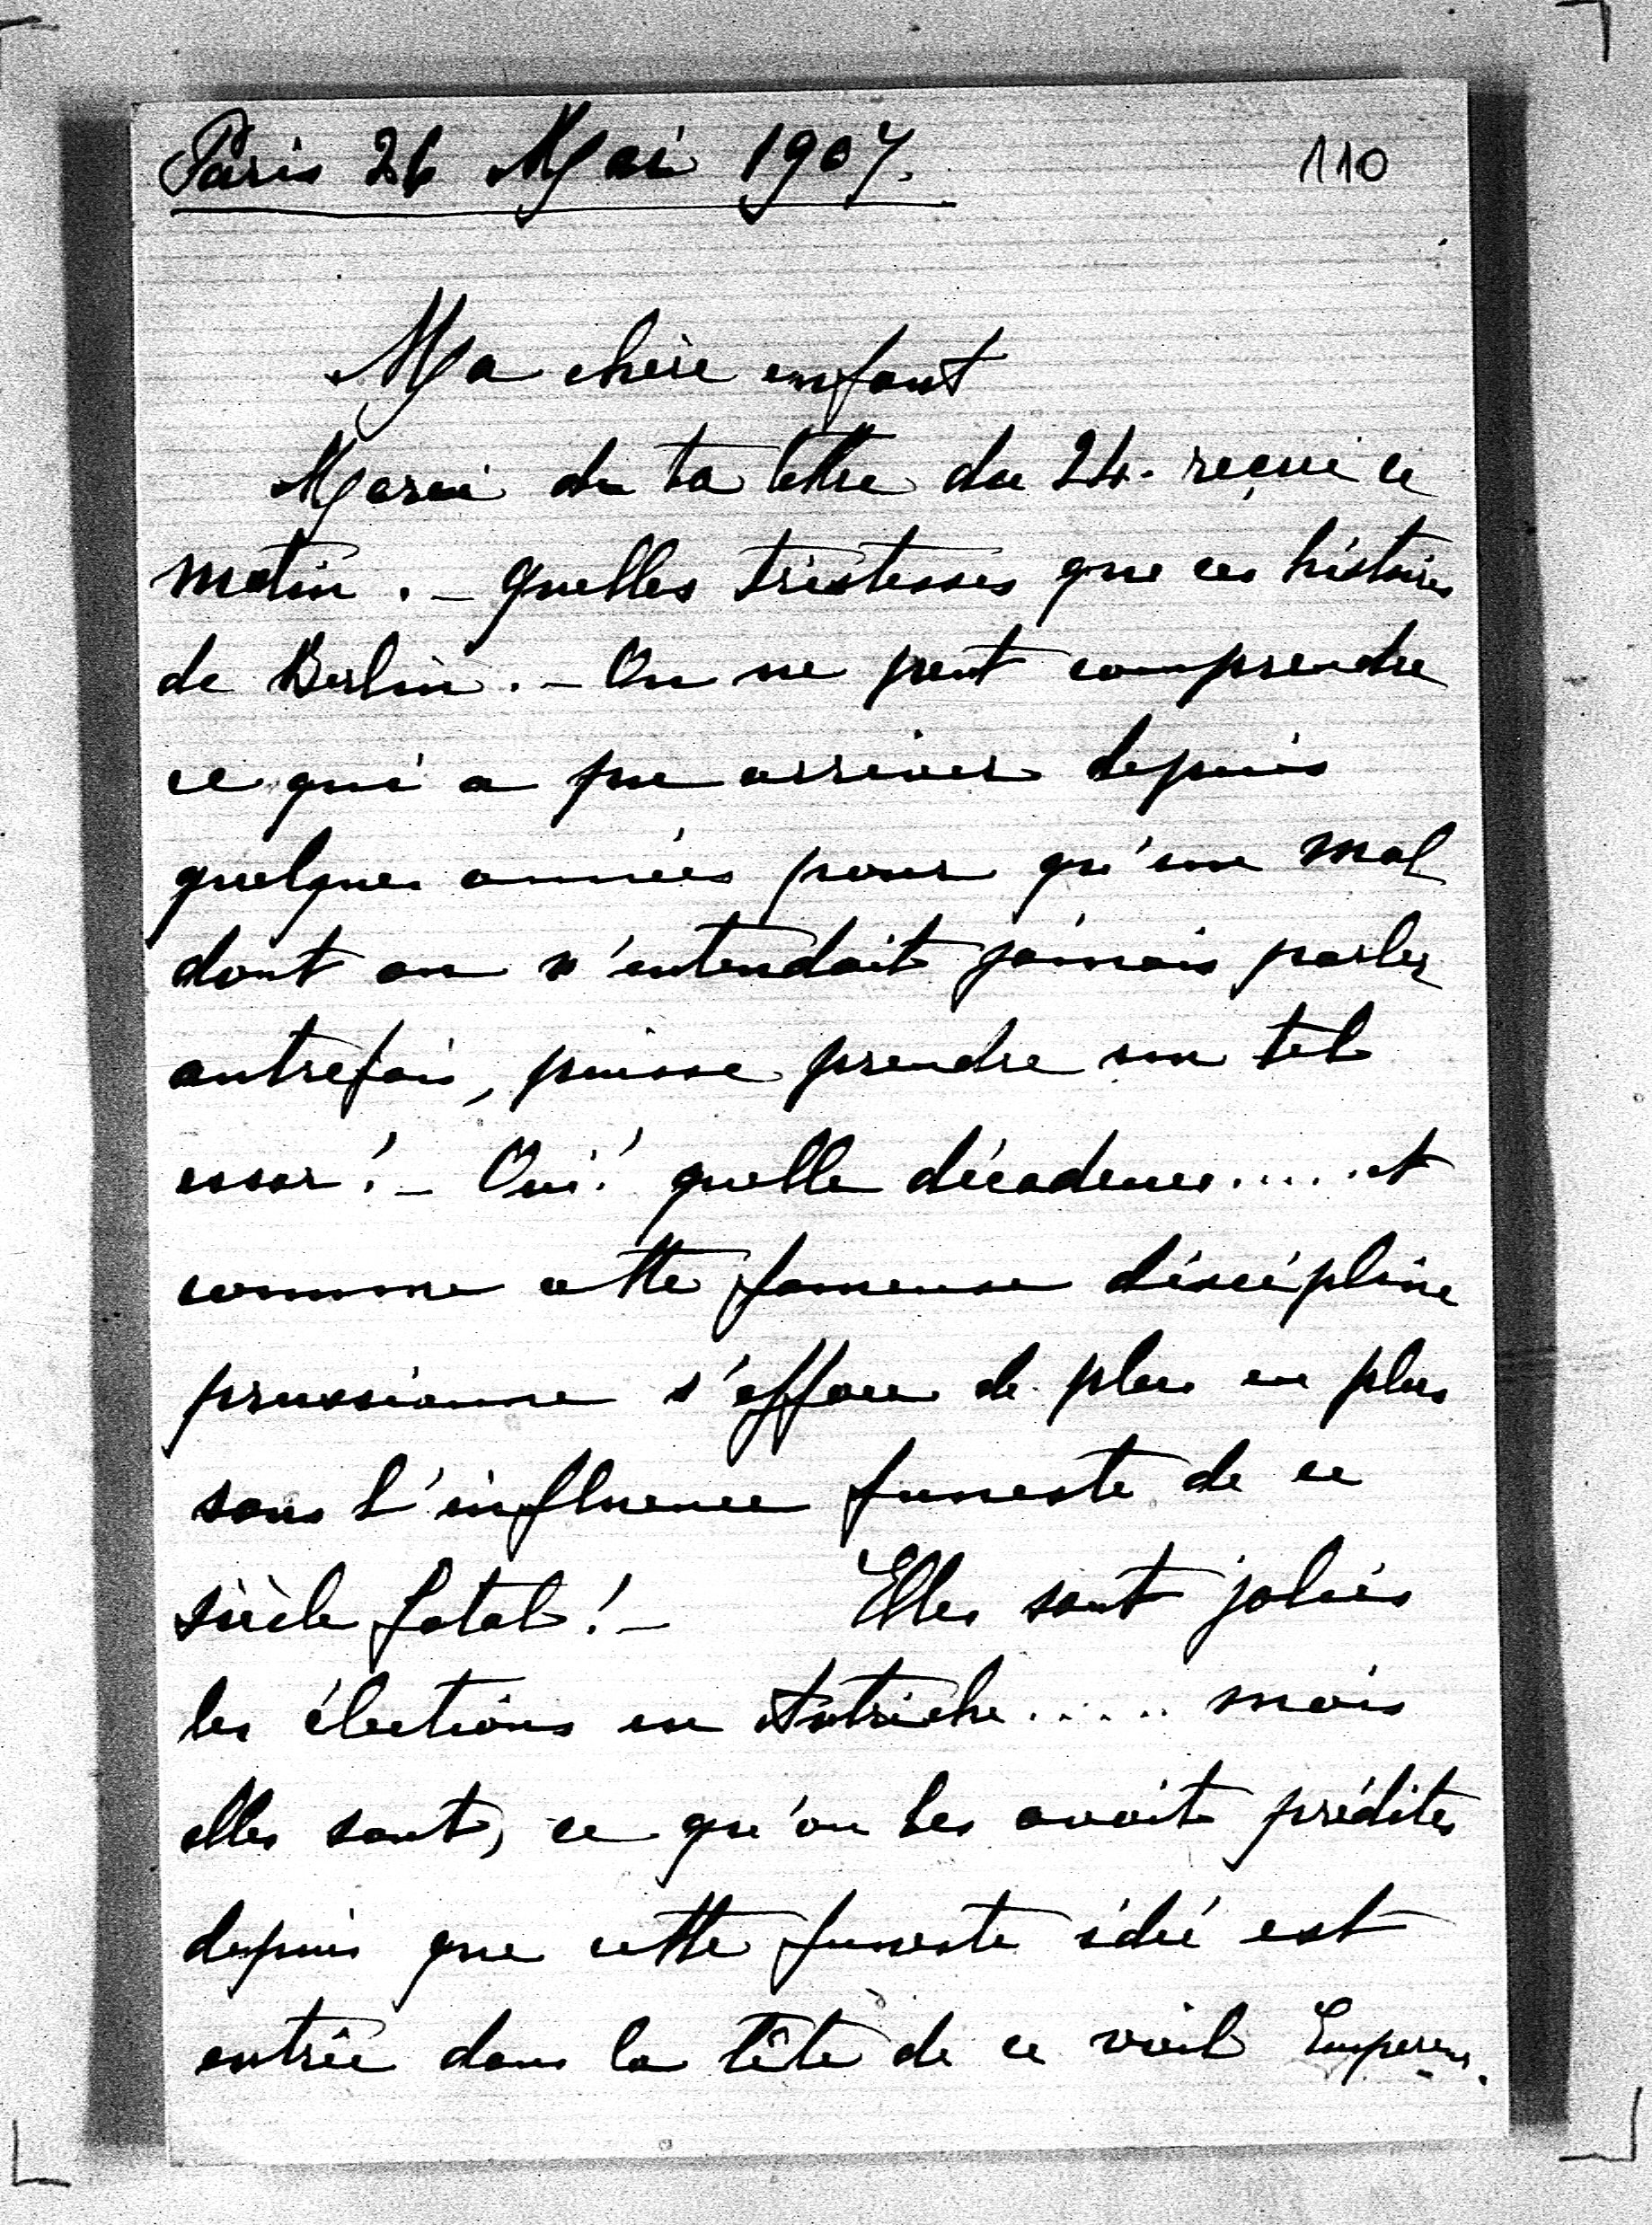 Paris 26 Mai 1907.
110
Ma chère enfant
Merci de ta lettre du 24. reçue ce
matin. - Quelles tristesses que ces histoires
de Berlin. - On ne peut comprendre
ce qui a pu arriver depuis
quelques années pour qu'un mal
dont on n'entendait jamais parler
autrefois, puisse prendre un tel
essor! - Oui! quelle décadence..... et
comme cette fameuse discipline
prussienne s'efface de plus en plus
sous l'influence funeste de ce
siècle fatal! - Elles sont jolies
les élections en Autriche..... mais
elles sont, ce qu'on les avait prédites
depuis que cette funeste idée est
entrée dans la tête de ce vieil Empereur.